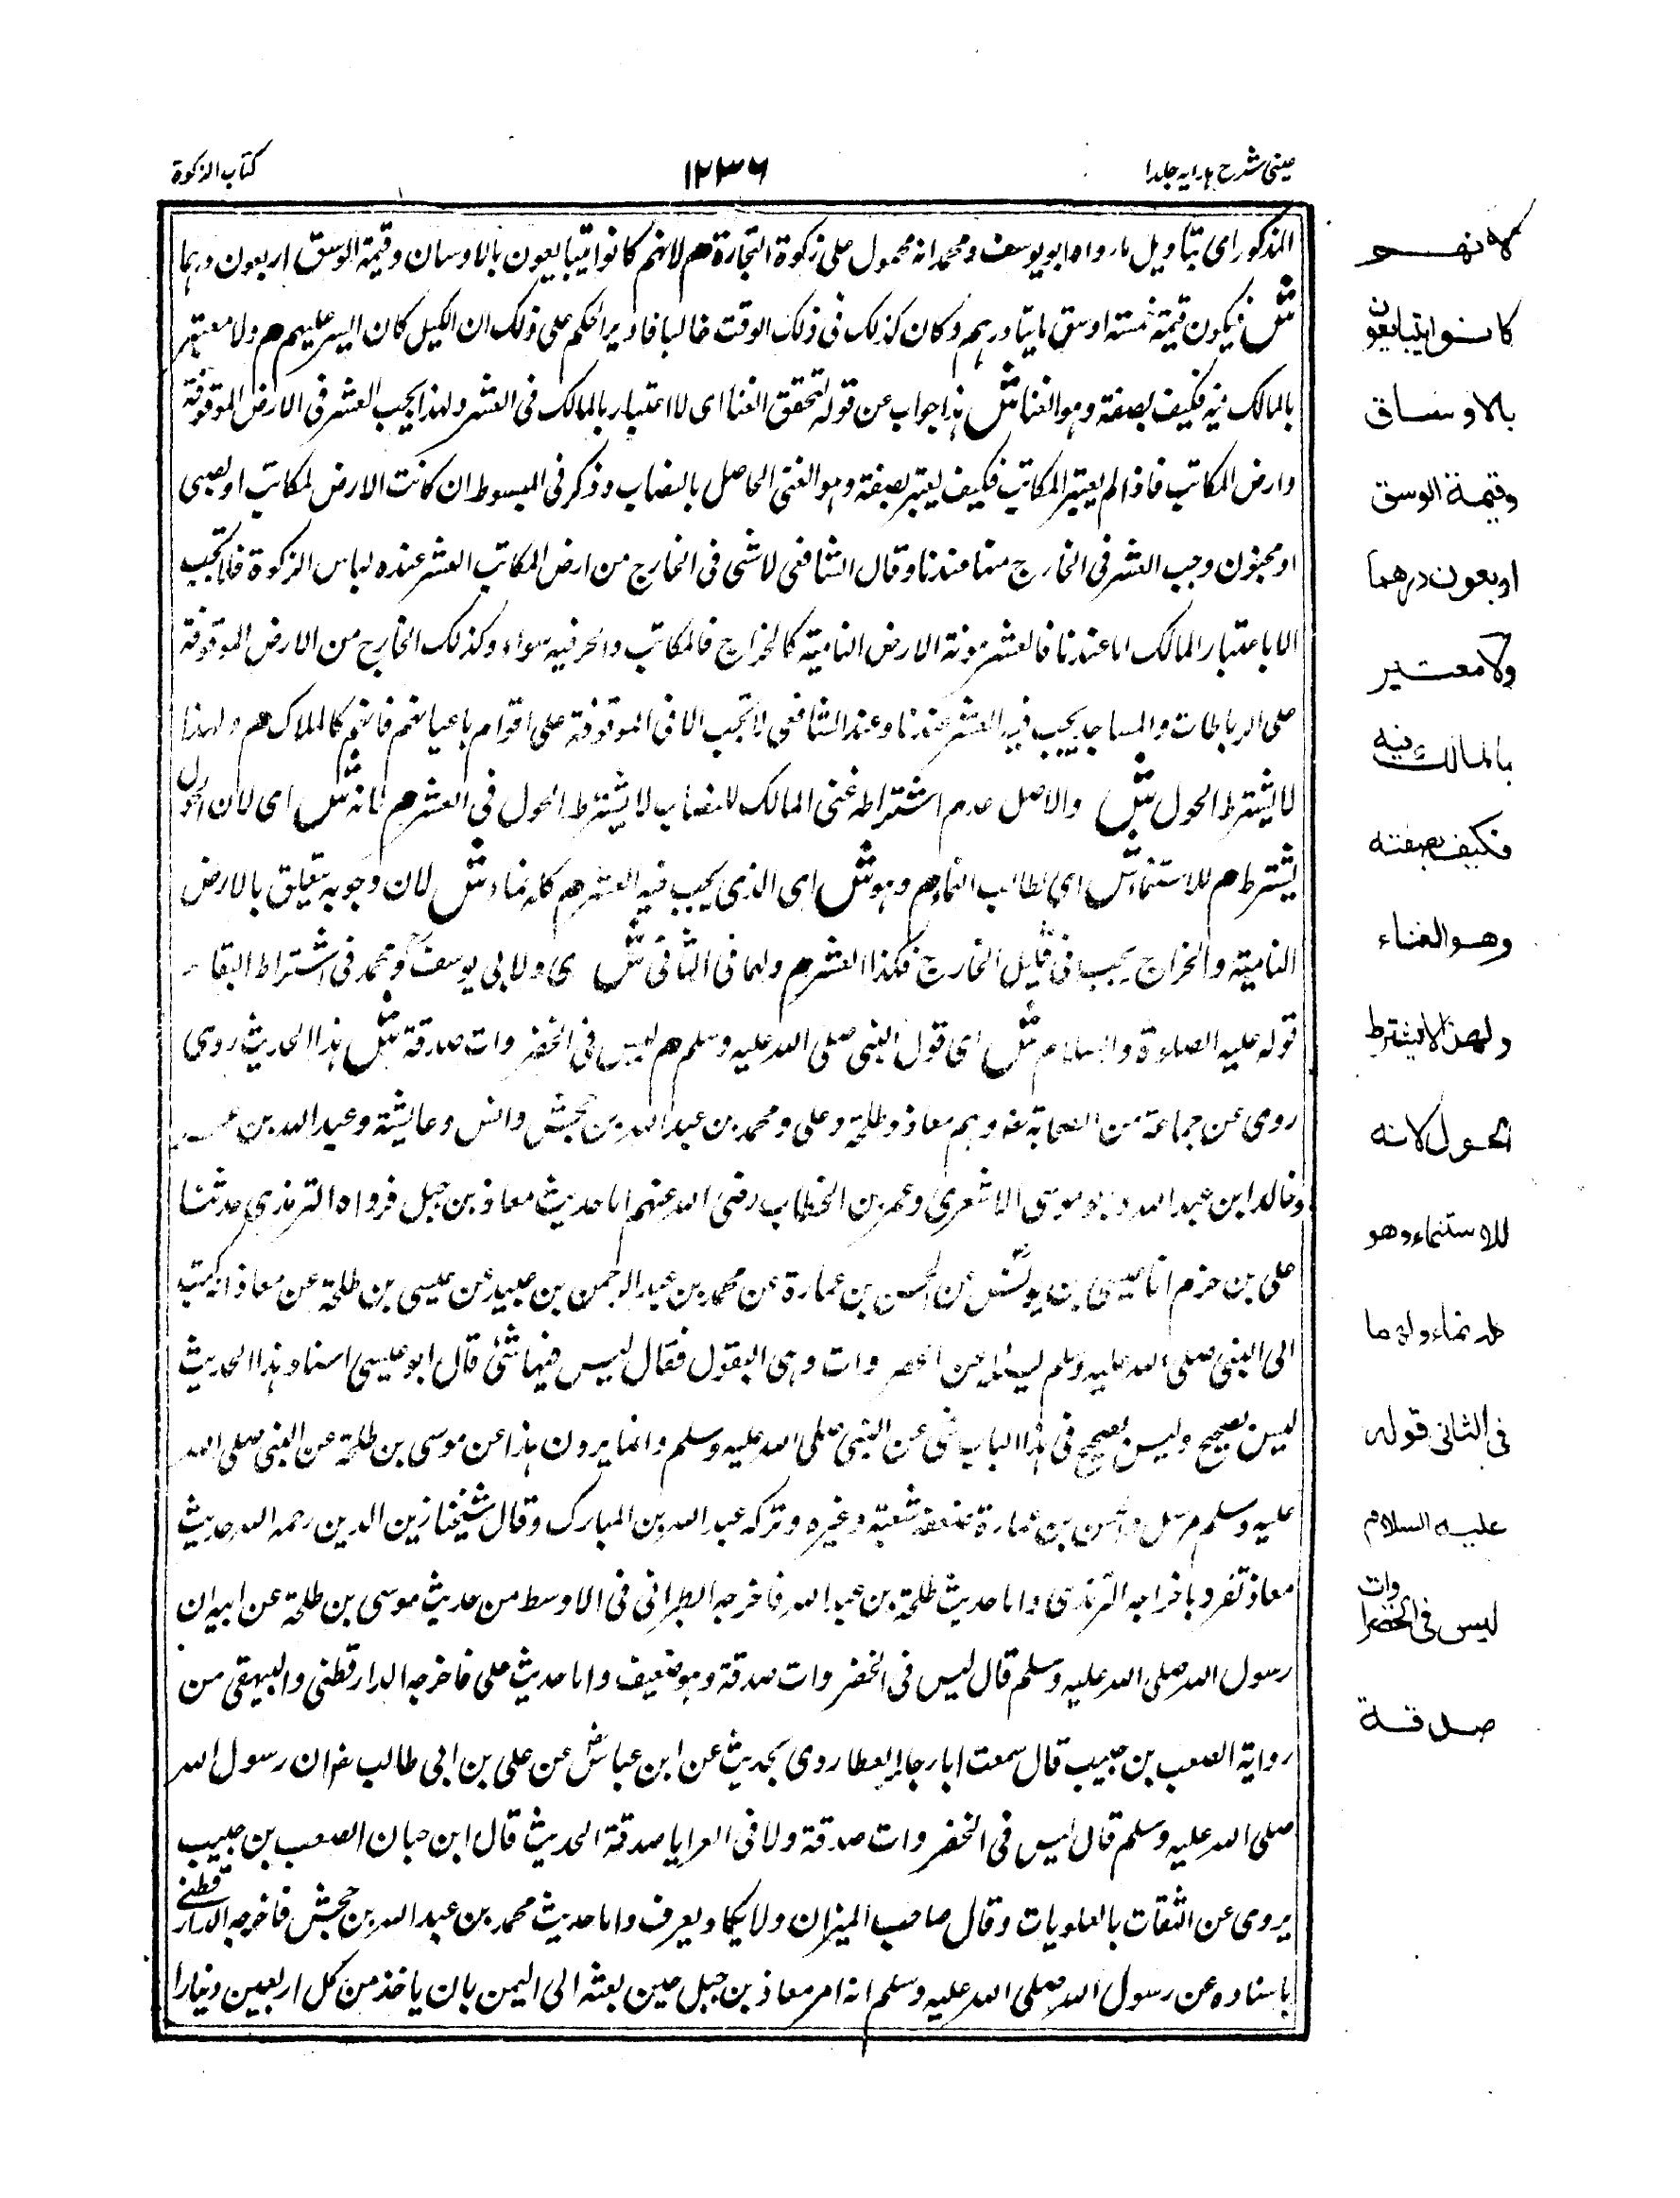 عینی شرح ہدایہ جلد ا
١٢٣٦
کتاب الزکوة
المذکور ای بتاویل مارواه ابو یوسف ومحمد انه محمول علی زکوة التجارة هم لانهم کانوا یتبایعون بالاوسان وقیمة الوسق اربعون درہما
ش فیکون قیمة خمسته اوسق مایتا درہم وکان کذلک فی ذلک الوقت غالبا فادیر الحکم علی ذلک ان الکیل کان الیسر علیہم هم ولا معتبر
بالمالک فیه فکیف بصفته وہو الغنا ش ہذا جواب عن قوله لتحقق الغنا ای لا اعتبار بالمالک فی العشر ولہذا یجب العشر فی الارض الموقوفة
وارض المکاتب فاذا لم یعتبر المکاتب فکیف یعتبر بصفته وہو الغنی الحاصل بالنصاب وذکر فی المبسوط ان کانت الارض لمکاتب او لصبی
او مجنون وجب العشر فی الخارج منہا عندنا وقال الشافعی لا شی فی الخارج من ارض المکاتب العشر عنده لباس الزکوة فلا تجب
الا باعتبار المالک اما عندنا فالعشر مونة الارض النامیة کالخراج فالمکاتب والحر فیه سواء وکذلک الخارج من الارض الموقوفة
علی الرباطات والمساجد یجب فیه العشر عندنا وعند الشافعی لا تجب الا فی الموقوفة علی اقوام باعیانهم فانهم کالملاک هم ولہذا
لا یشترط الحول ش والاصل عدم اشتراطه غنی المالک للنصاب لا یشترط الحول فی العشر هم لانه ش ای لان الحول
یشترط هم للاستنماء ش ای لطالب النماء هم وہو ش ای الذی یجب فیه العشر هم کله نماء ش لان وجوبه یتعلق بالارض
النامیة والخراج یجب فی قلیل الخارج فکذا العشر هم ولہما فی الثانی ش ی ولابی یوسف ومحمد فی اشتراط البقاء
قوله علیه الصلوة والسلام ش ای قول النبی صلی الله علیه وسلم هم لیس فی الخضروات صدقة ش ہذا الحدیث روی
روی عن جماعة من الصحابة وہم معاذ وطلحة وعلی ومحمد بن عبد الله بن جحش وانس وعایشة وعبد الله بن عمر
وخالد ابن عبد الله وبو موسی الاشعری وعمر بن الخطاب رضی الله عنہم اما حدیث معاذ بن جبل فرواه الترمذی حدثنا
علی بن خزم انا عیسی بن یونس عن الحسن بن عمارة عن محمد بن عبد الرحمن بن عبید عن عیسی بن طلحة عن معاذ انه کتب
الی النبی صلی الله علیه وسلم لیسئله عن الخضروات وہی البقول فقال لیس فیہا شئ قال ابو عیسی اسناد ہذا الحدیث
لیس بصحیح ولیس بصحیح فی ہذا الباب شی عن النبی صلی الله علیه وسلم وانما یرون ہذا عن موسی بن طلحة عن النبی صلی الله
علیه وسلم مرسل والحسن بن عمارة ضعفه شعبة وغیره وترکه عبد الله بن المبارک وقال شیخنا زین الدین رحمه الله حدیث
معاذ تفرد باخراجه الترمذی واما حدیث طلحة بن عبد الله فاخرجه الطبرانی فی الاوسط من حدیث موسی بن طلحة عن ابیه ان
رسول الله صلی الله علیه وسلم قال لیس فی الخضروات صدقة وہو ضعیف واما حدیث علی فاخرجه الدارقطنی والبیہقی من
روایة الصعب بن حبیب قال سمعت ابا رجاء العطاردی یحدیث عن ابن عباس عن علی بن ابی طالب ان رسول الله
صلی الله علیه وسلم قال لیس فی الخضروات صدقة ولا فی العرایا صدقة الحدیث قال ابن حبان الصعب بن حبیب
یروی عن الثقات بالعلویات وقال صاحب المیزان ولا یکاد یعرف واما حدیث محمد بن عبد الله بن جحش فاخرجه الدارقطنی
باسناده عن رسول الله صلی الله علیه وسلم انه امر معاذ بن جبل حین بعثه الی الیمن بان یاخذ من کل اربعین دینارا
لانهم
کانوا یتبایعون
بالاوساق
وقیمة الوسق
اربعون درهما
ولا معتبر
بالمالک فیه
فکیف بصفته
وهو الغناء
ولهذا لا یشترط
الحول لانه
للاستنماء وهو
کله نماء ولهما
فی الثانی قوله
علیه السلام
لیس فی الخضراوات
صدقة